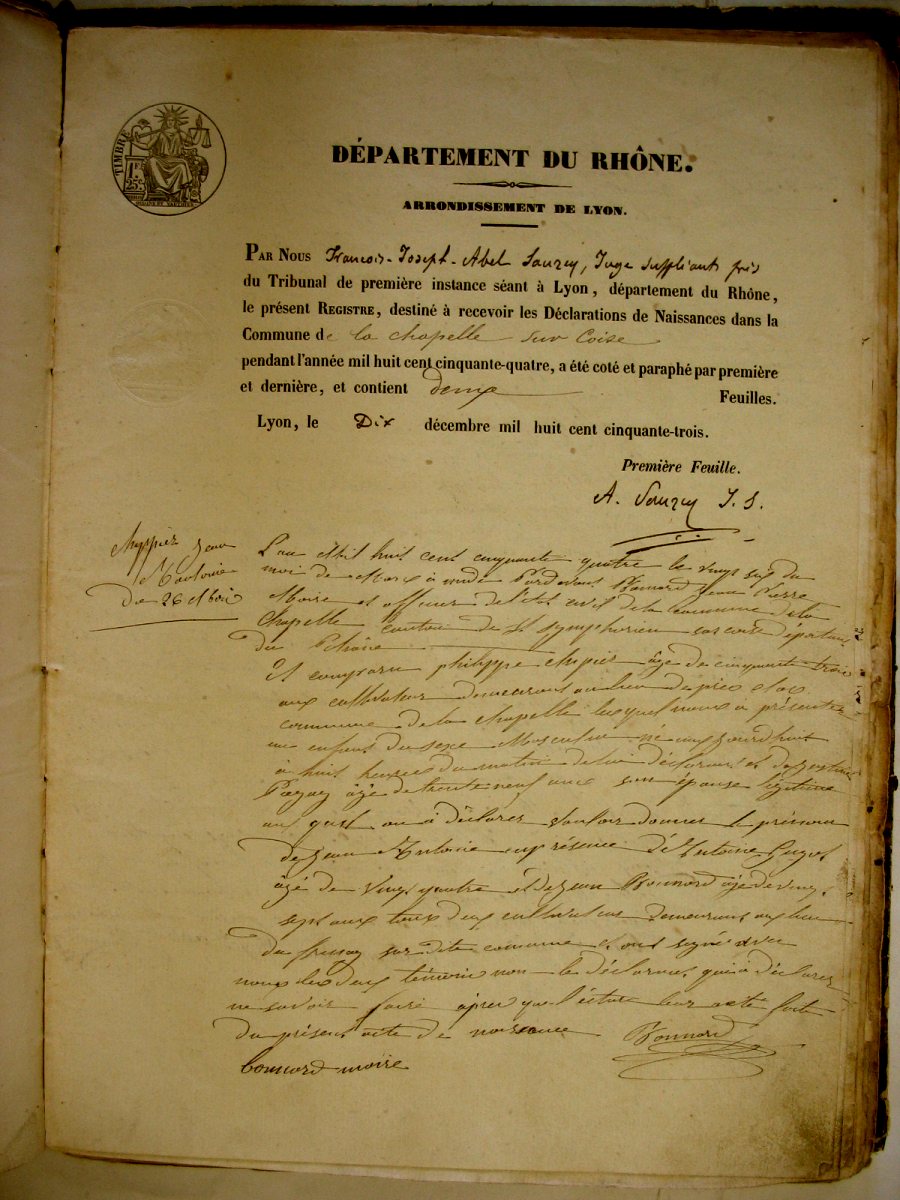 TIMBRE
1F.
25c.
DÉPARTEMENT DU RHÔNE.
ARRONDISSEMENT DE LYON.
PAR NOUS François-Joseph-Abel Sauzey, Juge suppléant près
du Tribunal de première instance séant à Lyon, département du Rhône,
le présent REGISTRE, destiné à recevoir les Déclarations de Naissances dans la
Commune de la chapelle sur Coise
pendant l'année mil huit cent cinquante-quatre, a été coté et paraphé par première
et dernière, et contient deux Feuilles.
Lyon, le Dix décembre mil huit cent cinquante-trois.
Première Feuille.
A. Sauzey J. S.
Jean
Antoine
Du 26
L'an Mil huit cent cinquante quatre le vingt six du
moi de Mars à Pardevant Bonnard Jean Pierre
Maire et officier de l'état civil de la commune de la
Chapelle canton de St Symphorien sur coise départem
du Rhône
Et comparu philippe âgé de cinquante trois
ans cultivateur demeurant au lieu de
commune de la chapelle lequel nous a présenté
un enfant du sexe Masculin né aujourdhuit
à huit heures du matin de lui déclarant et de
âgé de trente neuf ans son épouse légitime
au quel on à déclarer vouloir donner le prénom
de Jean Antoine en présence d'Antoine
âgé de vingt quatre et de Jean Bonnard âgé de vingt
sept ans tous deux cultivateurs demeurant au lieu
du sur dite commune et ont signé avec
nous les deux témoin non le déclarant qui à déclarer
ne savoir faire après que lecture leur a été faite
du présent acte de naissance Bonnard
bonnard maire